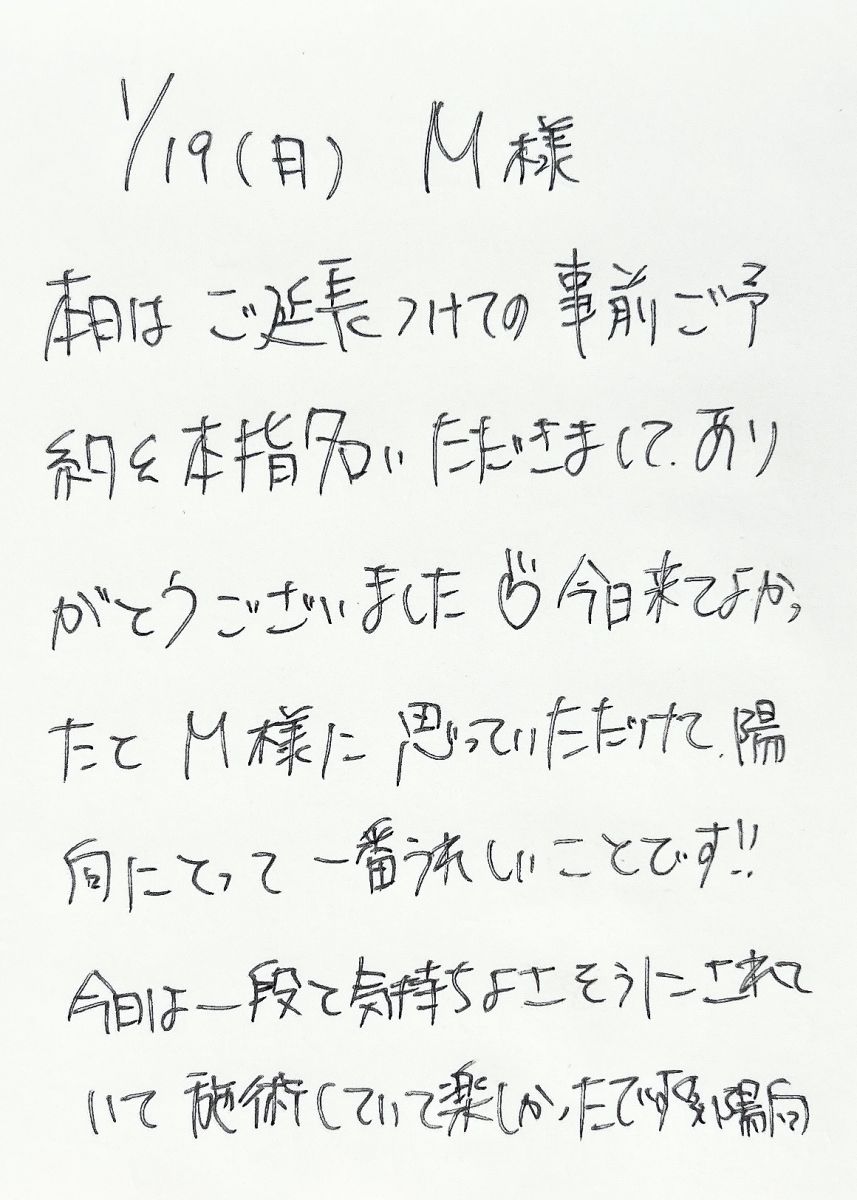 1/19(日) M様
本日は ご延長つけての 事前ご予
約を本指名いただきまして、あり
がとうございました♡今日来てよかっ
たと M様に 思っていただけて、陽
向にとって 一番うれしいことです!!
今日は一段と気持ちよさそうにされて
いて 施術していて楽しかったです 陽向